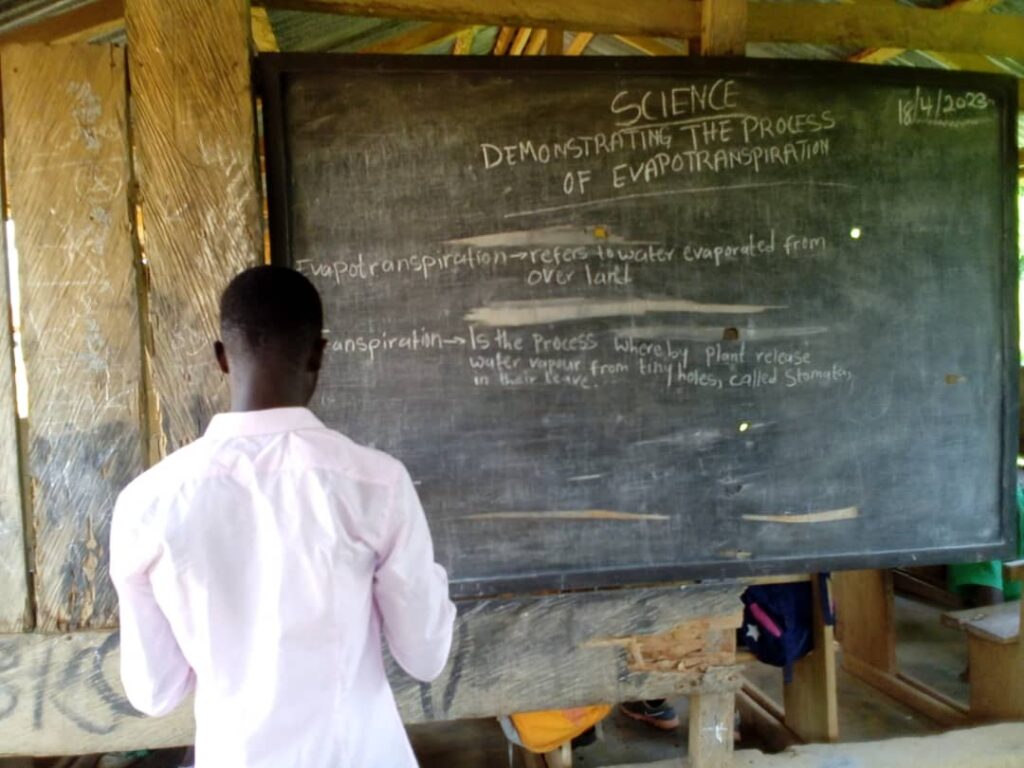 SCIENCE
18/4/2023
DEMONSTRATING THE PROCESS
OF EVAPOTRANSPIRATION
Evapotranspiration → refers to water evaporated from
over land
Transpiration → Is the process whereby plant release
water vapour from tiny holes, called Stomata,
in their leave.